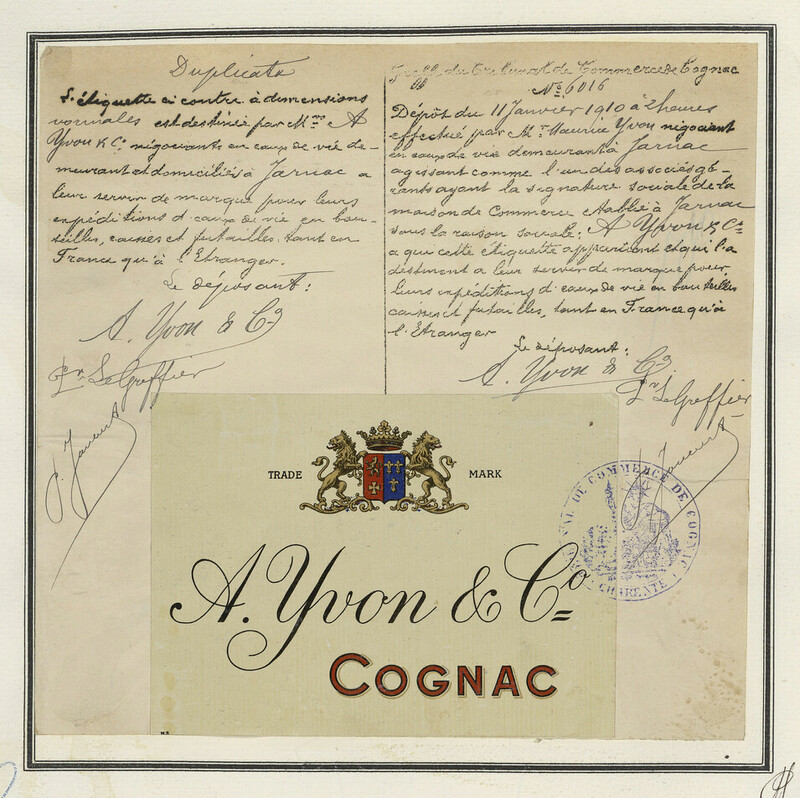 Duplicata
L'étiquette ci contre à dimensions
normales est destinée par Mrs A
Yvon & Co négociants en eaux de vie de-
meurant et domiciliés à Jarnac a
leur servir de marque pour leurs
expéditions d'eaux de vie en bou-
teilles, caisses et futailles, tant en
France qu'à l'Etranger.
Le déposant:
A. Yvon & Co
Pr Le Greffier
Greffe du Tribunal de Commerce de Cognac
No 6016
Dépôt du 11 Janvier 1910 à 2 heures
effectué par Mr Maurice Yvon négociant
en eaux de vie demeurant à Jarnac
agissant comme l'un des associés gé-
rants ayant la signature sociale de la
maison de Commerce etablie à Jarnac
sous la raison sociale: A Yvon & Co
a qui cette étiquette appartient et qui l'a
destinent a leur servir de marque pour
leurs expéditions d'eaux de vie en bouteilles
caisses et futailles, tant en France qu'à
l'Etranger
Le déposant:
A. Yvon & Co
Pr Le Greffier
TRADE MARK
A. Yvon & Co
COGNAC
TRIBUNAL DE COMMERCE DE COGNAC
CHARENTE